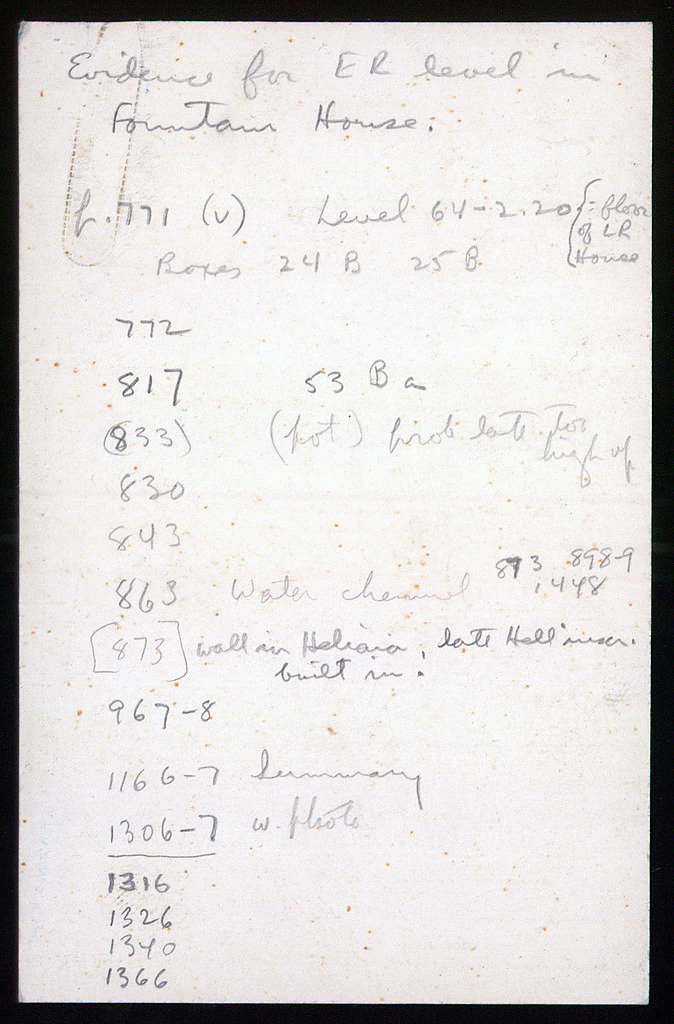 Evidence for ER level in
Fountain House.
p. 771 (v) Level 64-2.20 {= floor
of LR
House
Boxes 24 B 25 B
772
817 53 B a
(833) (pot) prob late too
high up
830
843
863 Water channel 873 898-9
1448
[873] wall in Heliaia, late Hell inscr.
built in!
967-8
1166-7 Summary
1306-7 w. photo
1316
1326
1340
1366